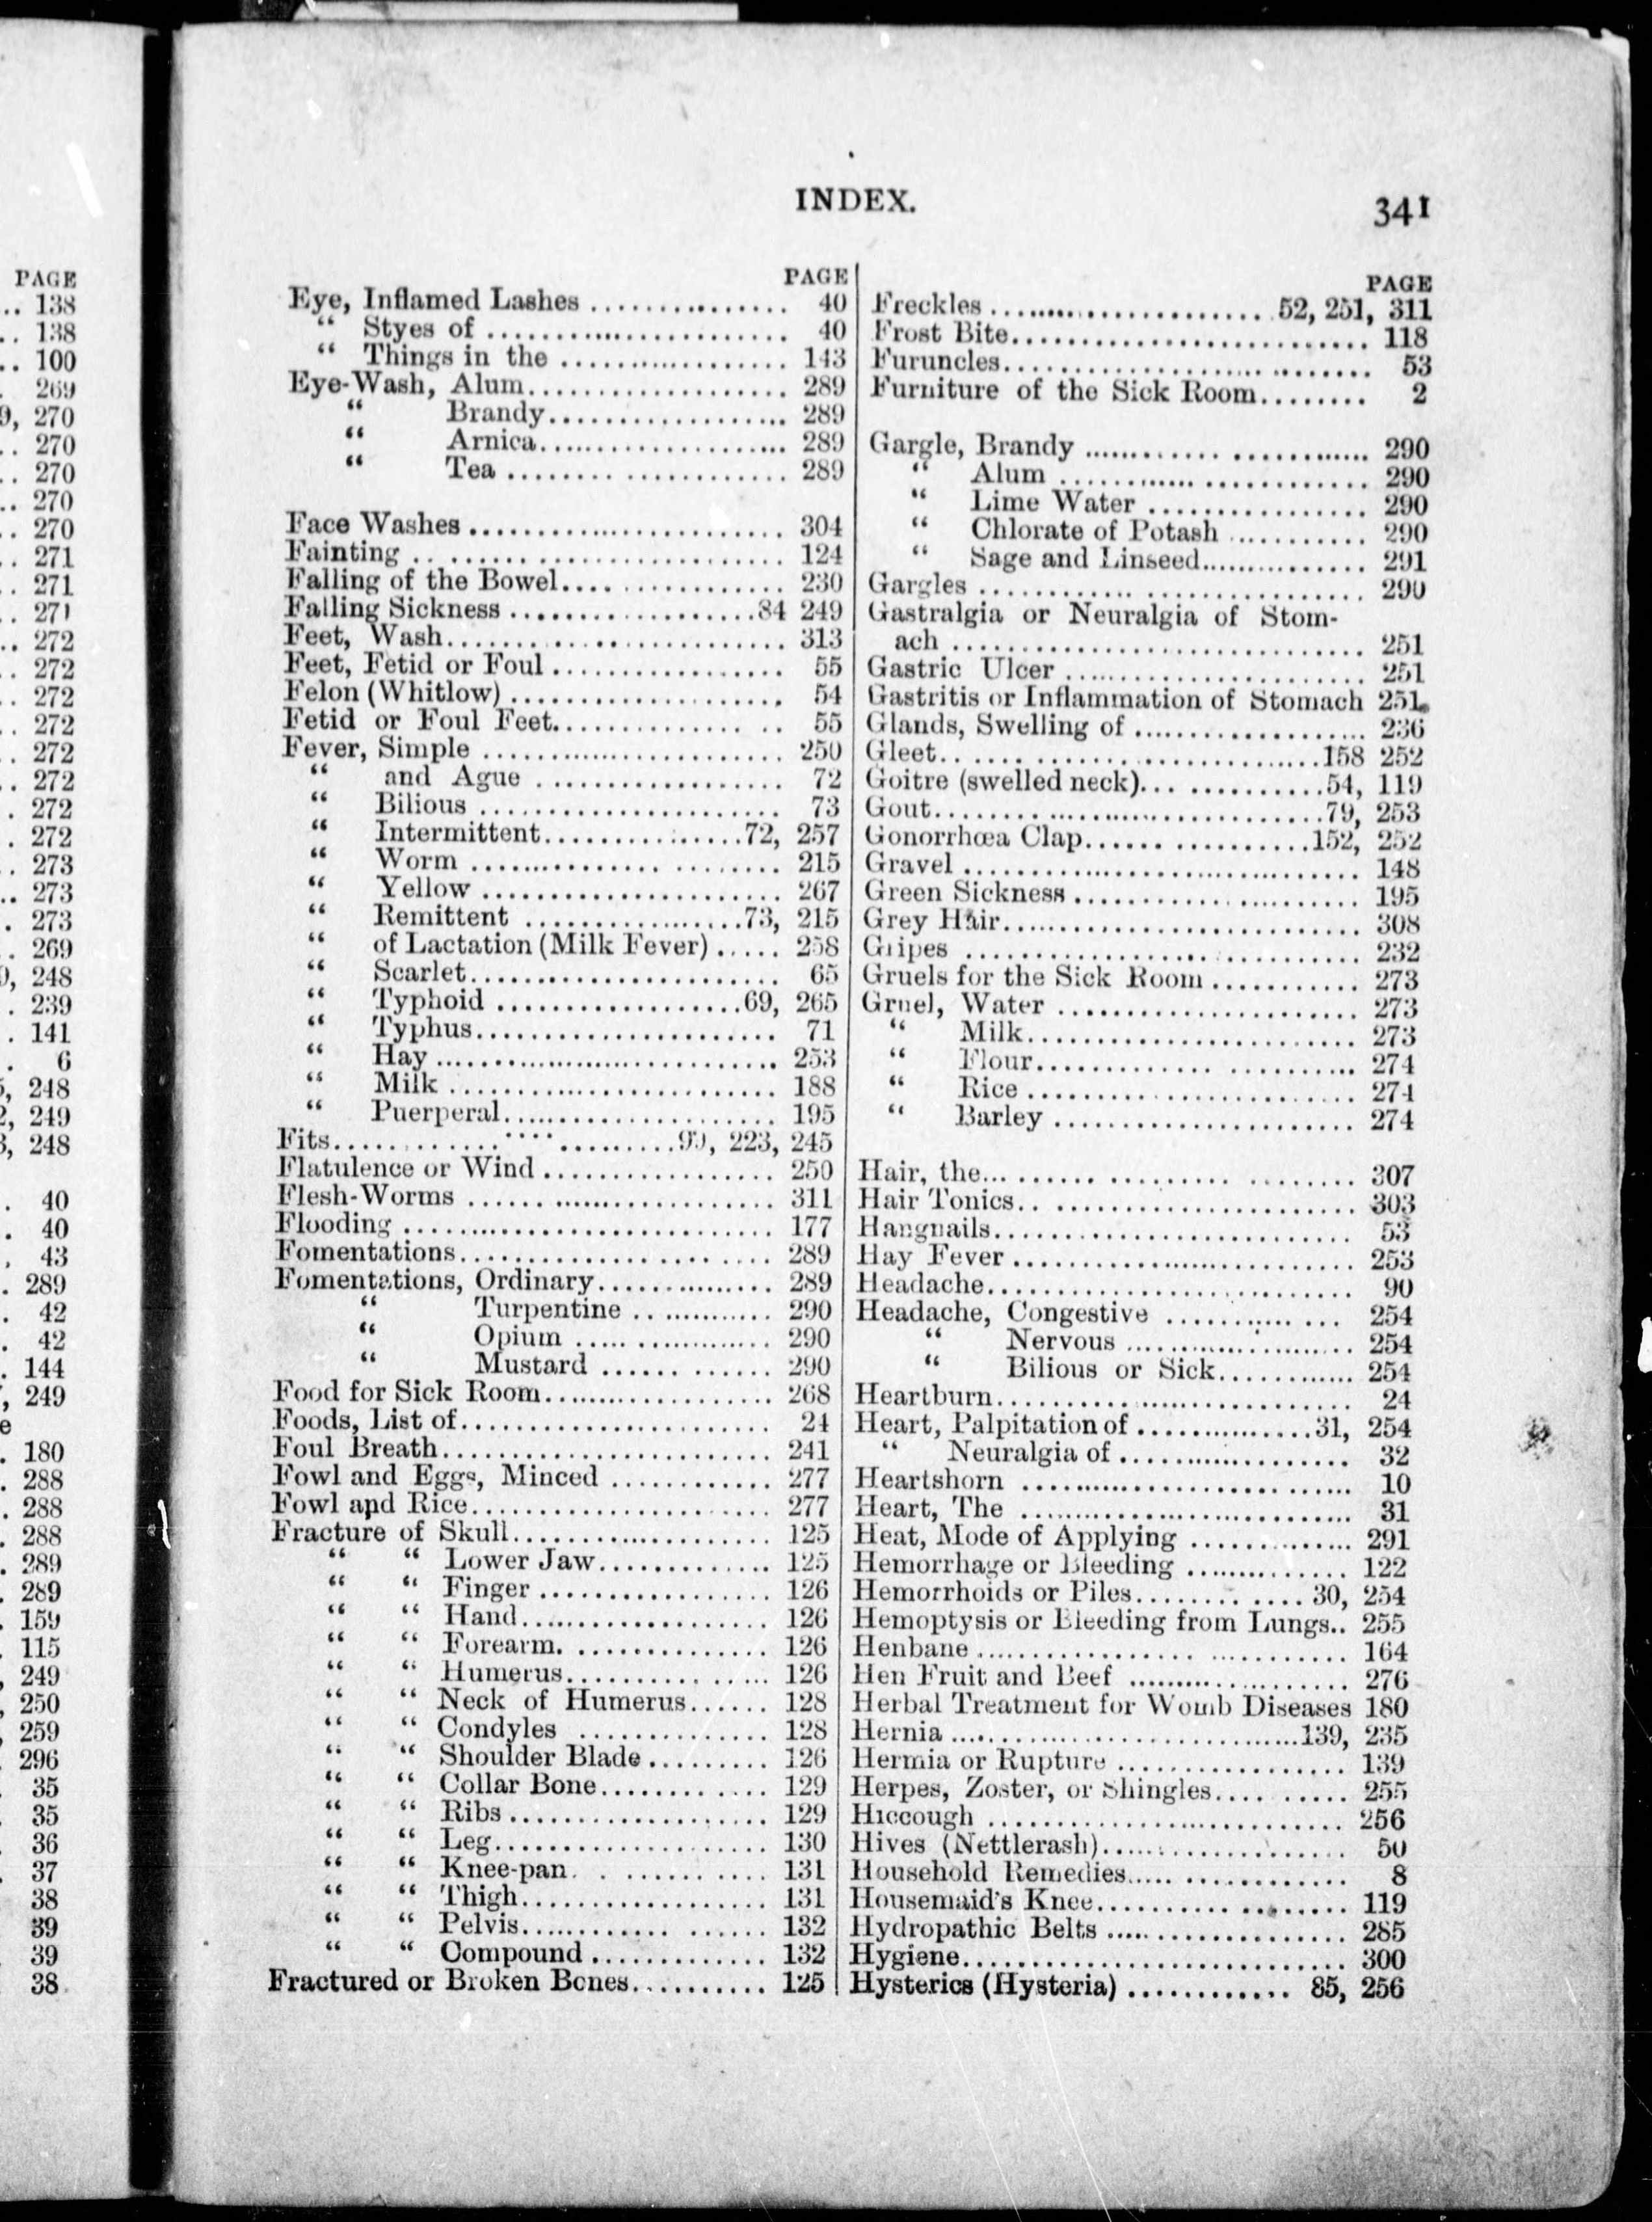 PAGE
.. 138
.. 138
.. 100
. 269
9, 270
.. 270
.. 270
.. 270
.. 270
.. 271
.. 271
.. 271
.. 272
.. 272
.. 272
.. 272
.. 272
.. 272
. 272
. 272
. 273
.. 273
. 273
.. 269
9, 248
. 239
. 141
. 6
, 248
, 249
, 248
. 40
. 40
. 43
. 289
. 42
. 42
. 144
, 249
e
. 180
. 288
. 288
. 288
. 289
. 289
. 159
. 115
, 249
, 250
, 259
296
35
35
36
37
38
39
39
38
INDEX.
341
PAGE
Eye, Inflamed Lashes .................. 40
“ Styes of ........................... 40
“ Things in the .................... 143
Eye-Wash, Alum....................... 289
“ Brandy..................... 289
“ Arnica..................... 289
“ Tea ......................... 289
Face Washes ............................ 304
Fainting ................................. 124
Falling of the Bowel.................... 230
Falling Sickness ......................84 249
Feet, Wash.............................. 313
Feet, Fetid or Foul ..................... 55
Felon (Whitlow) ........................ 54
Fetid or Foul Feet..................... 55
Fever, Simple ........................... 250
“ and Ague ...................... 72
“ Bilious ........................... 73
“ Intermittent..................72, 257
“ Worm ............................ 215
“ Yellow ........................... 267
“ Remittent ....................73, 215
“ of Lactation (Milk Fever) ..... 258
“ Scarlet............................ 65
“ Typhoid ......................69, 265
“ Typhus........................... 71
“ Hay ............................... 253
“ Milk ............................. 188
“ Puerperal........................ 195
Fits..............................99, 223, 245
Flatulence or Wind ..................... 250
Flesh-Worms ........................... 311
Flooding ................................. 177
Fomentations............................ 289
Fomentations, Ordinary................ 289
“ Turpentine ............. 290
“ Opium .................. 290
“ Mustard ................ 290
Food for Sick Room..................... 268
Foods, List of............................ 24
Foul Breath.............................. 241
Fowl and Eggs, Minced ................ 277
Fowl and Rice........................... 277
Fracture of Skull........................ 125
“ “ Lower Jaw................ 125
“ “ Finger ..................... 126
“ “ Hand....................... 126
“ “ Forearm................... 126
“ “ Humerus................... 126
“ “ Neck of Humerus....... 128
“ “ Condyles .................. 128
“ “ Shoulder Blade ........... 126
“ “ Collar Bone................ 129
“ “ Ribs ........................ 129
“ “ Leg.......................... 130
“ “ Knee-pan.................. 131
“ “ Thigh....................... 131
“ “ Pelvis....................... 132
“ “ Compound ................ 132
Fractured or Broken Bones............. 125
PAGE
Freckles ........................... 52, 251, 311
Frost Bite................................ 118
Furuncles................................ 53
Furniture of the Sick Room......... 2
Gargle, Brandy ......................... 290
“ Alum ............................ 290
“ Lime Water ................... 290
“ Chlorate of Potash ............ 290
“ Sage and Linseed............... 291
Gargles ................................... 290
Gastralgia or Neuralgia of Stom-
ach ..................................... 251
Gastric Ulcer ............................ 251
Gastritis or Inflammation of Stomach 251
Glands, Swelling of ..................... 236
Gleet..................................158 252
Goitre (swelled neck)................54, 119
Gout...................................79, 253
Gonorrhœa Clap....................152, 252
Gravel .................................... 148
Green Sickness .......................... 195
Grey Hair................................ 308
Gripes .................................... 232
Gruels for the Sick Room ............. 273
Gruel, Water ............................ 273
“ Milk.............................. 273
“ Flour............................. 274
“ Rice .............................. 274
“ Barley ........................... 274
Hair, the.................................. 307
Hair Tonics.............................. 303
Hangnails................................ 53
Hay Fever ............................... 253
Headache................................ 90
Headache, Congestive ................. 254
“ Nervous ...................... 254
“ Bilious or Sick............. 254
Heartburn............................... 24
Heart, Palpitation of .................31, 254
“ Neuralgia of ..................... 32
Heartshorn .............................. 10
Heart, The .............................. 31
Heat, Mode of Applying .............. 291
Hemorrhage or Bleeding .............. 122
Hemorrhoids or Piles................ 30, 254
Hemoptysis or Bleeding from Lungs.. 255
Henbane ................................. 164
Hen Fruit and Beef .................... 276
Herbal Treatment for Womb Diseases 180
Hernia ................................139, 235
Hermia or Rupture .................... 139
Herpes, Zoster, or Shingles............ 255
Hiccough ................................ 256
Hives (Nettlerash)...................... 50
Household Remedies................... 8
Housemaid's Knee...................... 119
Hydropathic Belts ...................... 285
Hygiene.................................. 300
Hysterics (Hysteria) ............... 85, 256